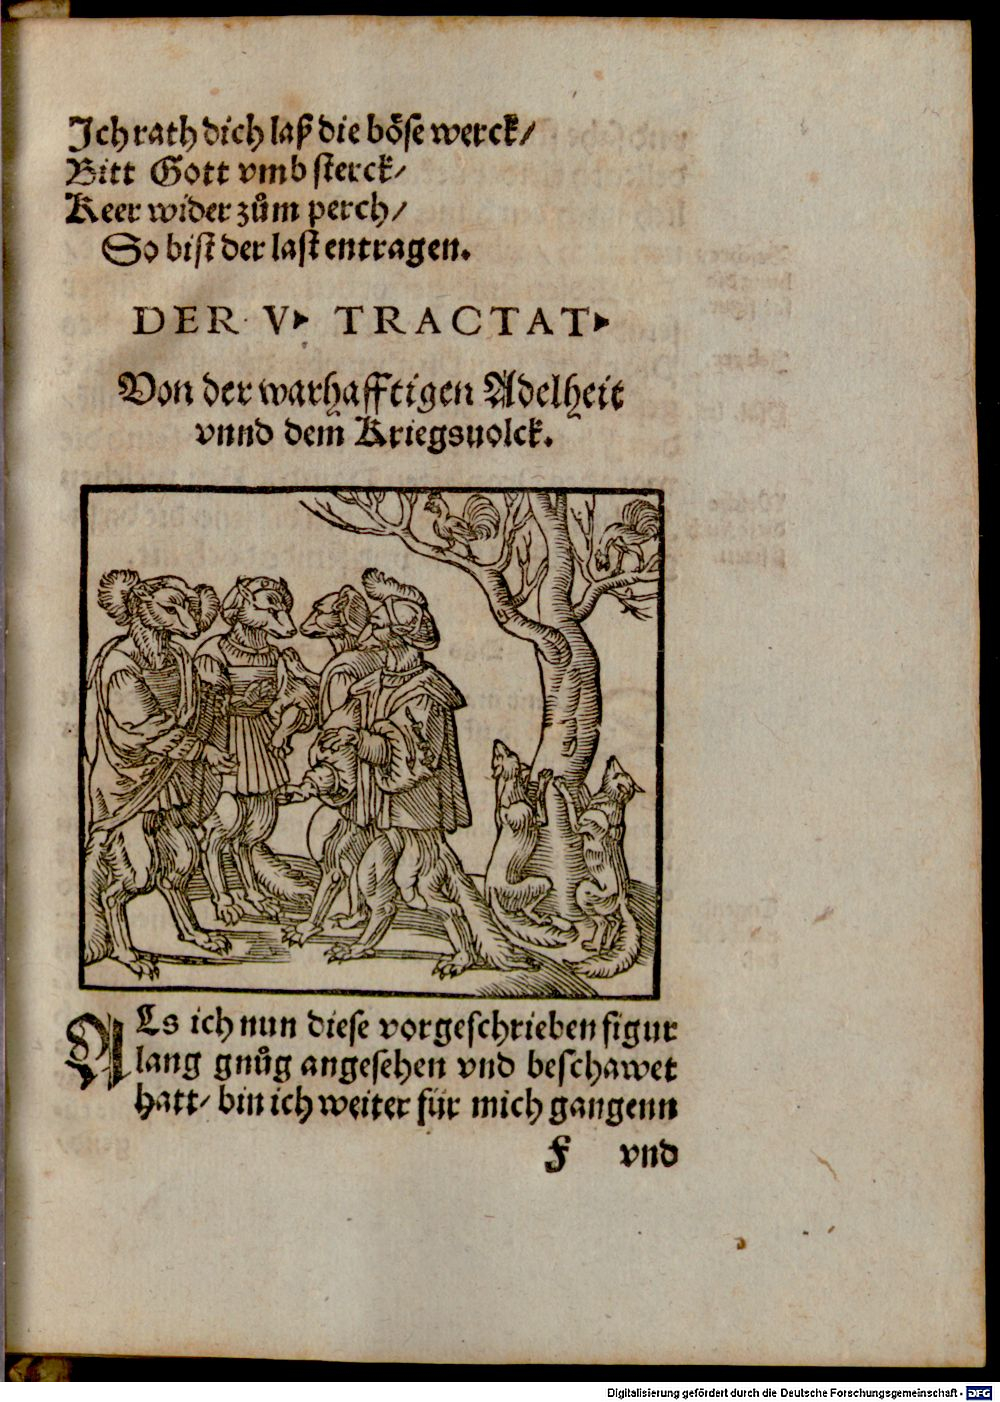 Ich rath dich laß die boͤse werck/
Bitt Gott vmb sterck/
Keer wider zuͦm perch/
So bist der last entragen.
DER V. TRACTAT.
Von der warhafftigen Adelheit
vnnd dem Kriegsuolck.
ALs ich nun diese vorgeschrieben figur
lang gnuͦg angesehen vnd beschawet
hatt/ bin ich weiter für mich gangenn
F vnd
Digitalisierung gefördert durch die Deutsche Forschungsgemeinschaft - DFG